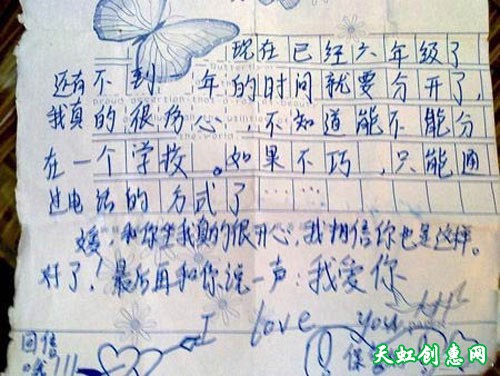 现在已经六年级了
还有不到一年的时间就要分开了,
我真的很伤心,不知道能不能分
在一个学校。如果不巧,只能通
过电话的方式了……
媛,和你坐我真的很开心,我相信你也是这样。
对了!最后再和你说一声:我爱你
I love you
回信
哦!!!
保
天虹创惠网